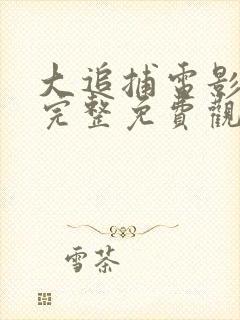 大追捕電影
完整免費觀
雪茶